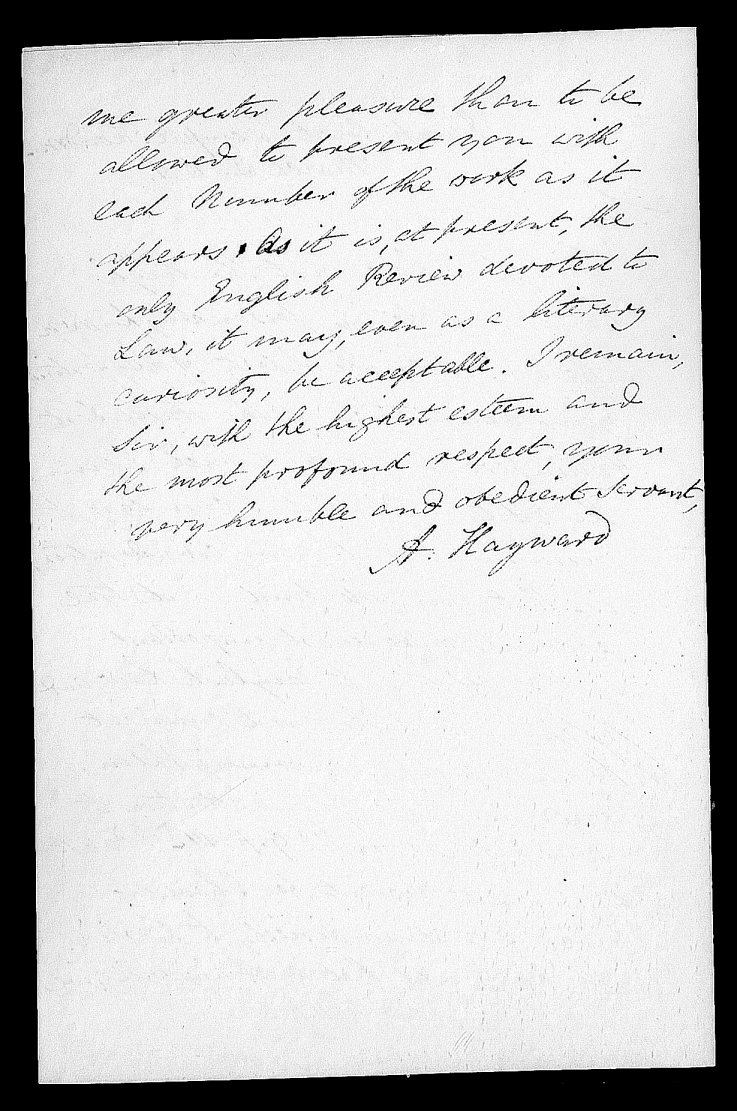 me greater pleasure than to be
allowed to present you with
each Number of the work as it
appears. As it is, at present, the
only English Review devoted to
Law, it may, even as a literary
curiosity, be acceptable. I remain,
Sir, with the highest esteem and
the most profound respect, your
very humble and obedient servant,
A. Hayward